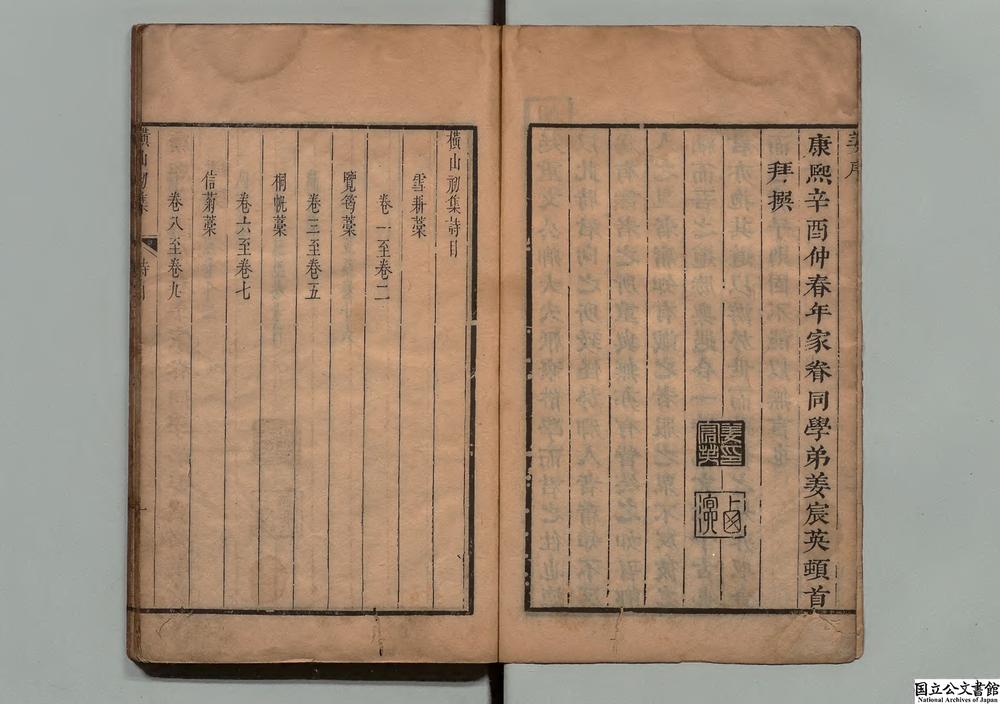 姜序
康熙辛酉仲春年家眷同學弟姜宸英頓首
拜撰
姜印宸英
橫山初集詩目
雪耕藁
卷一至卷二
覽筠藁
卷三至卷五
桐帆藁
卷六至卷七
信菊藁
卷八至卷九
橫山初集
詩目
国立公文書館
National Archives of Japan